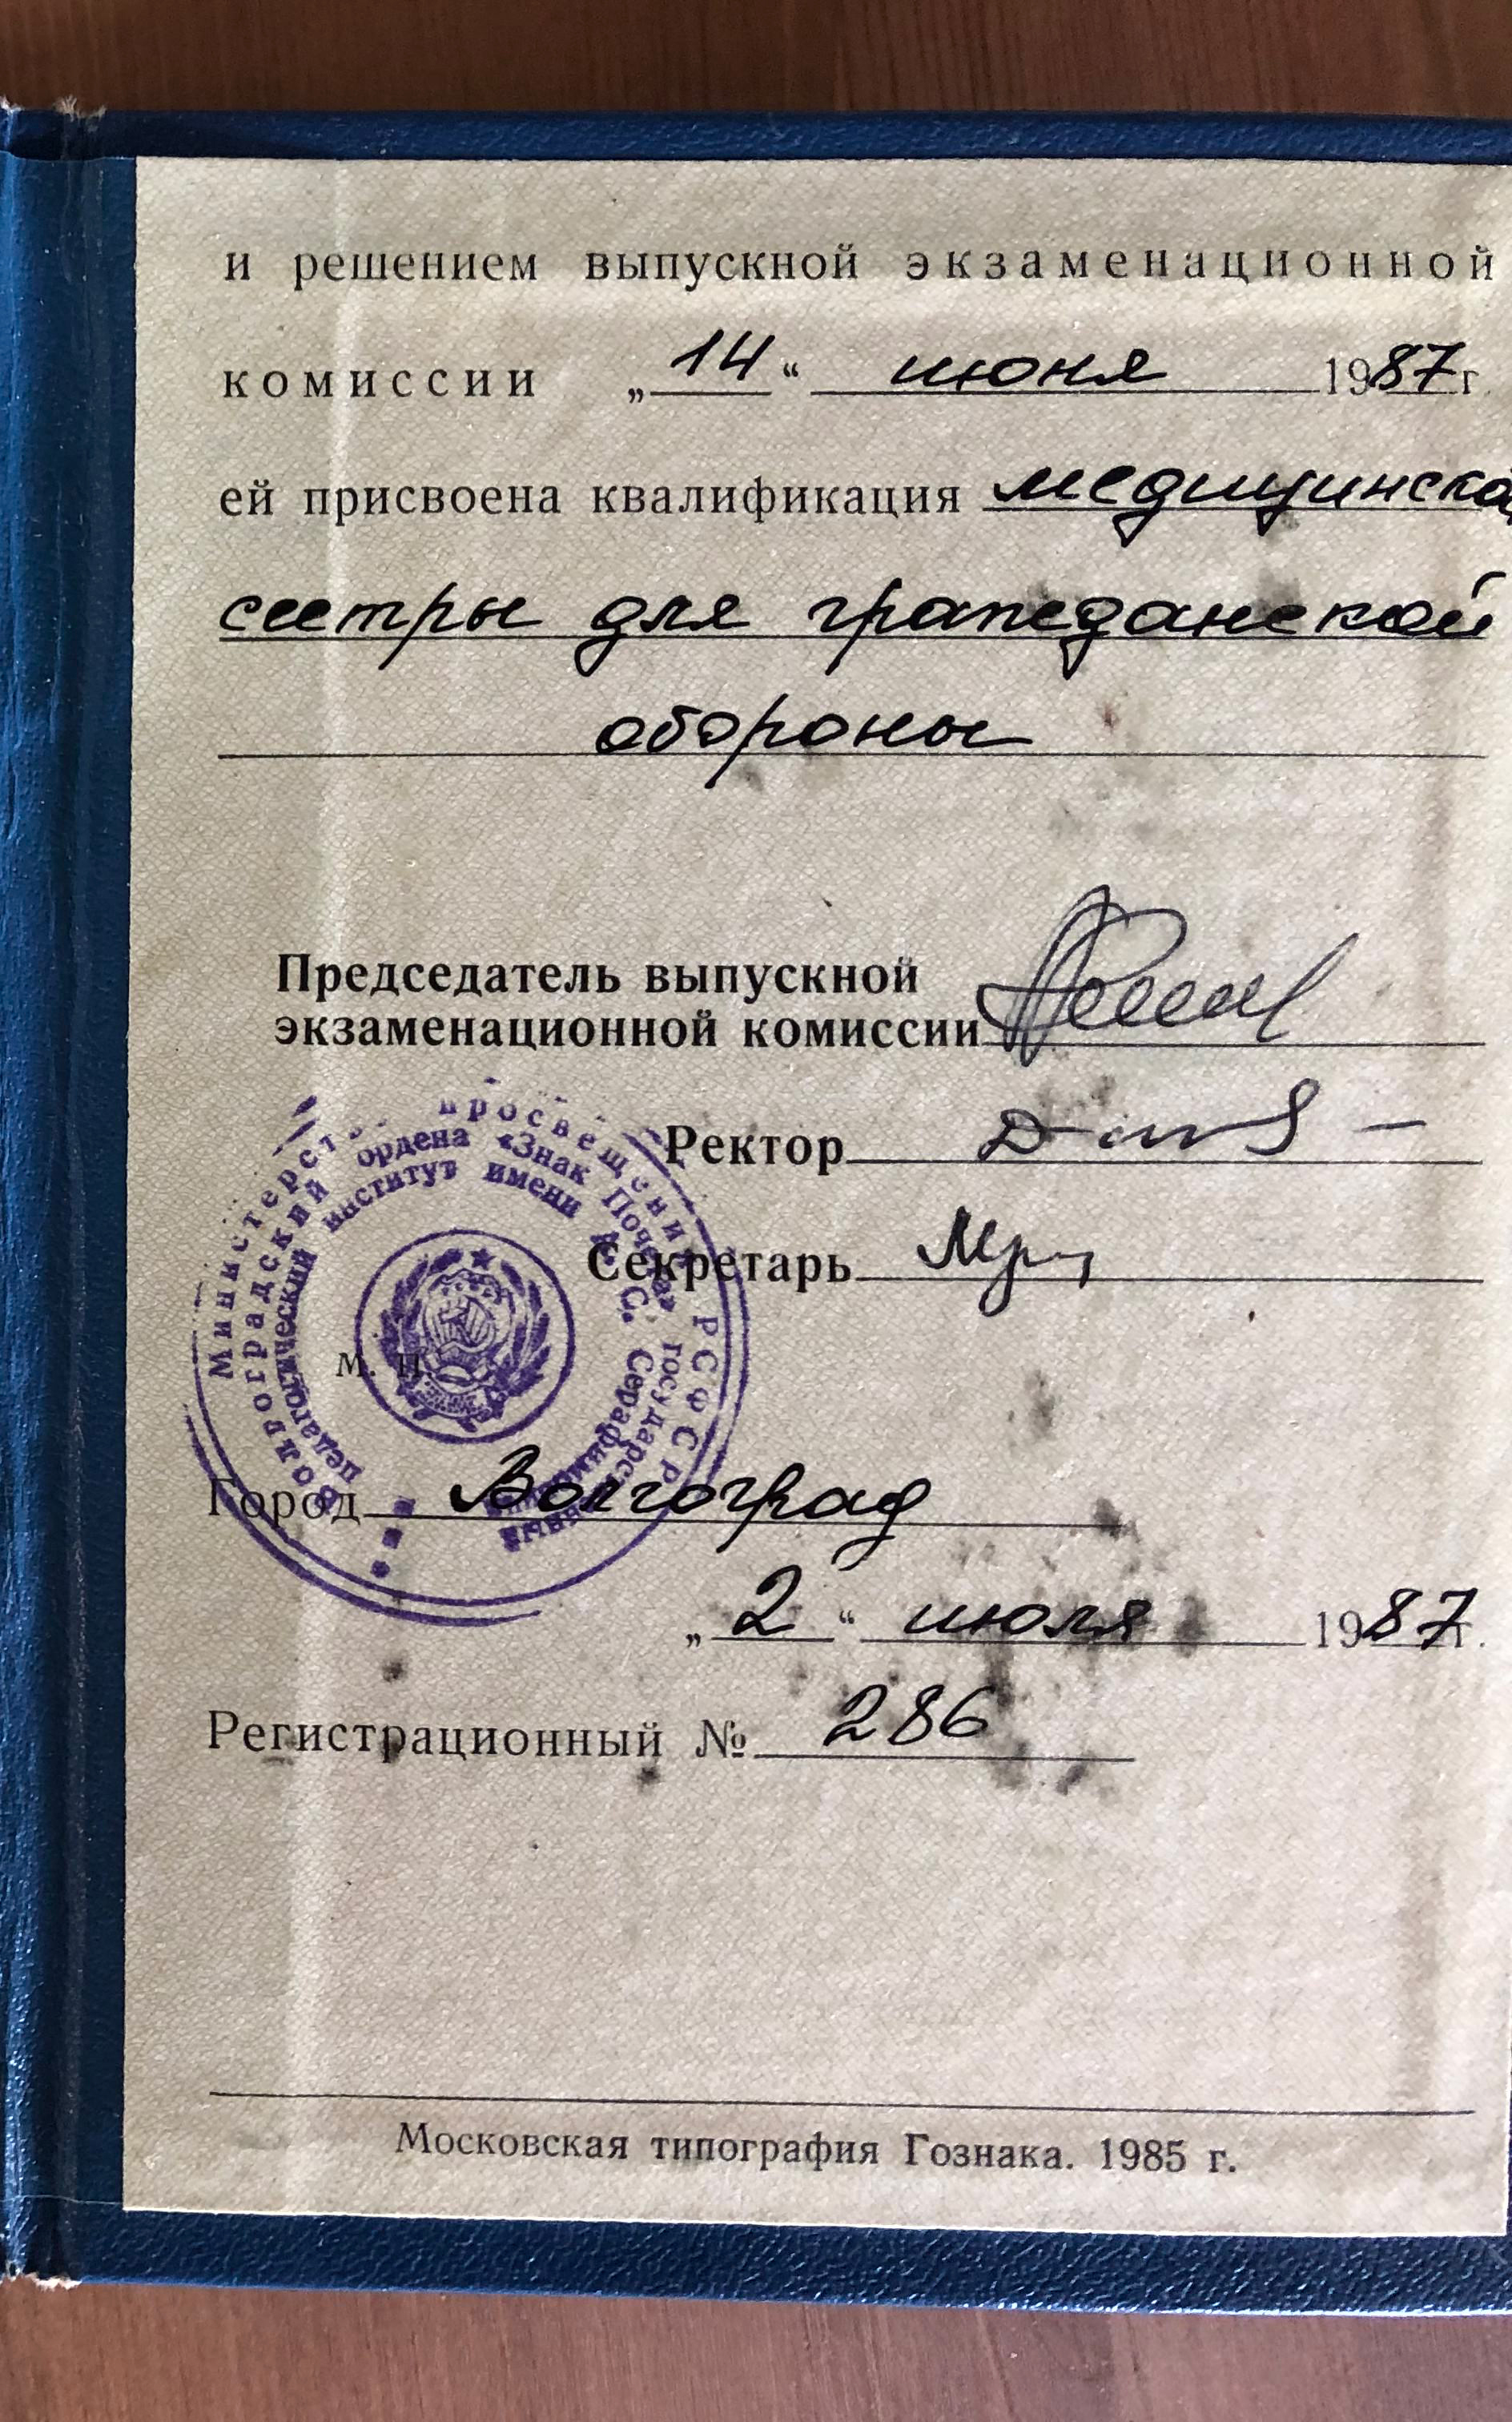 и решением выпускной экзаменационной
комиссии „14“ июня 1987 г.
ей присвоена квалификация медицинска
сестры для гражданской
обороны
Председатель выпускной
экзаменационной комиссии
Ректор
Секретарь
М. П.
Министерство просвещения РСФСР
Волгоградский ордена «Знак Почета» государственный
педагогический институт имени А. С. Серафимовича
Город Волгоград
„2“ июля 1987 г.
Регистрационный № 286
Московская типография Гознака. 1985 г.